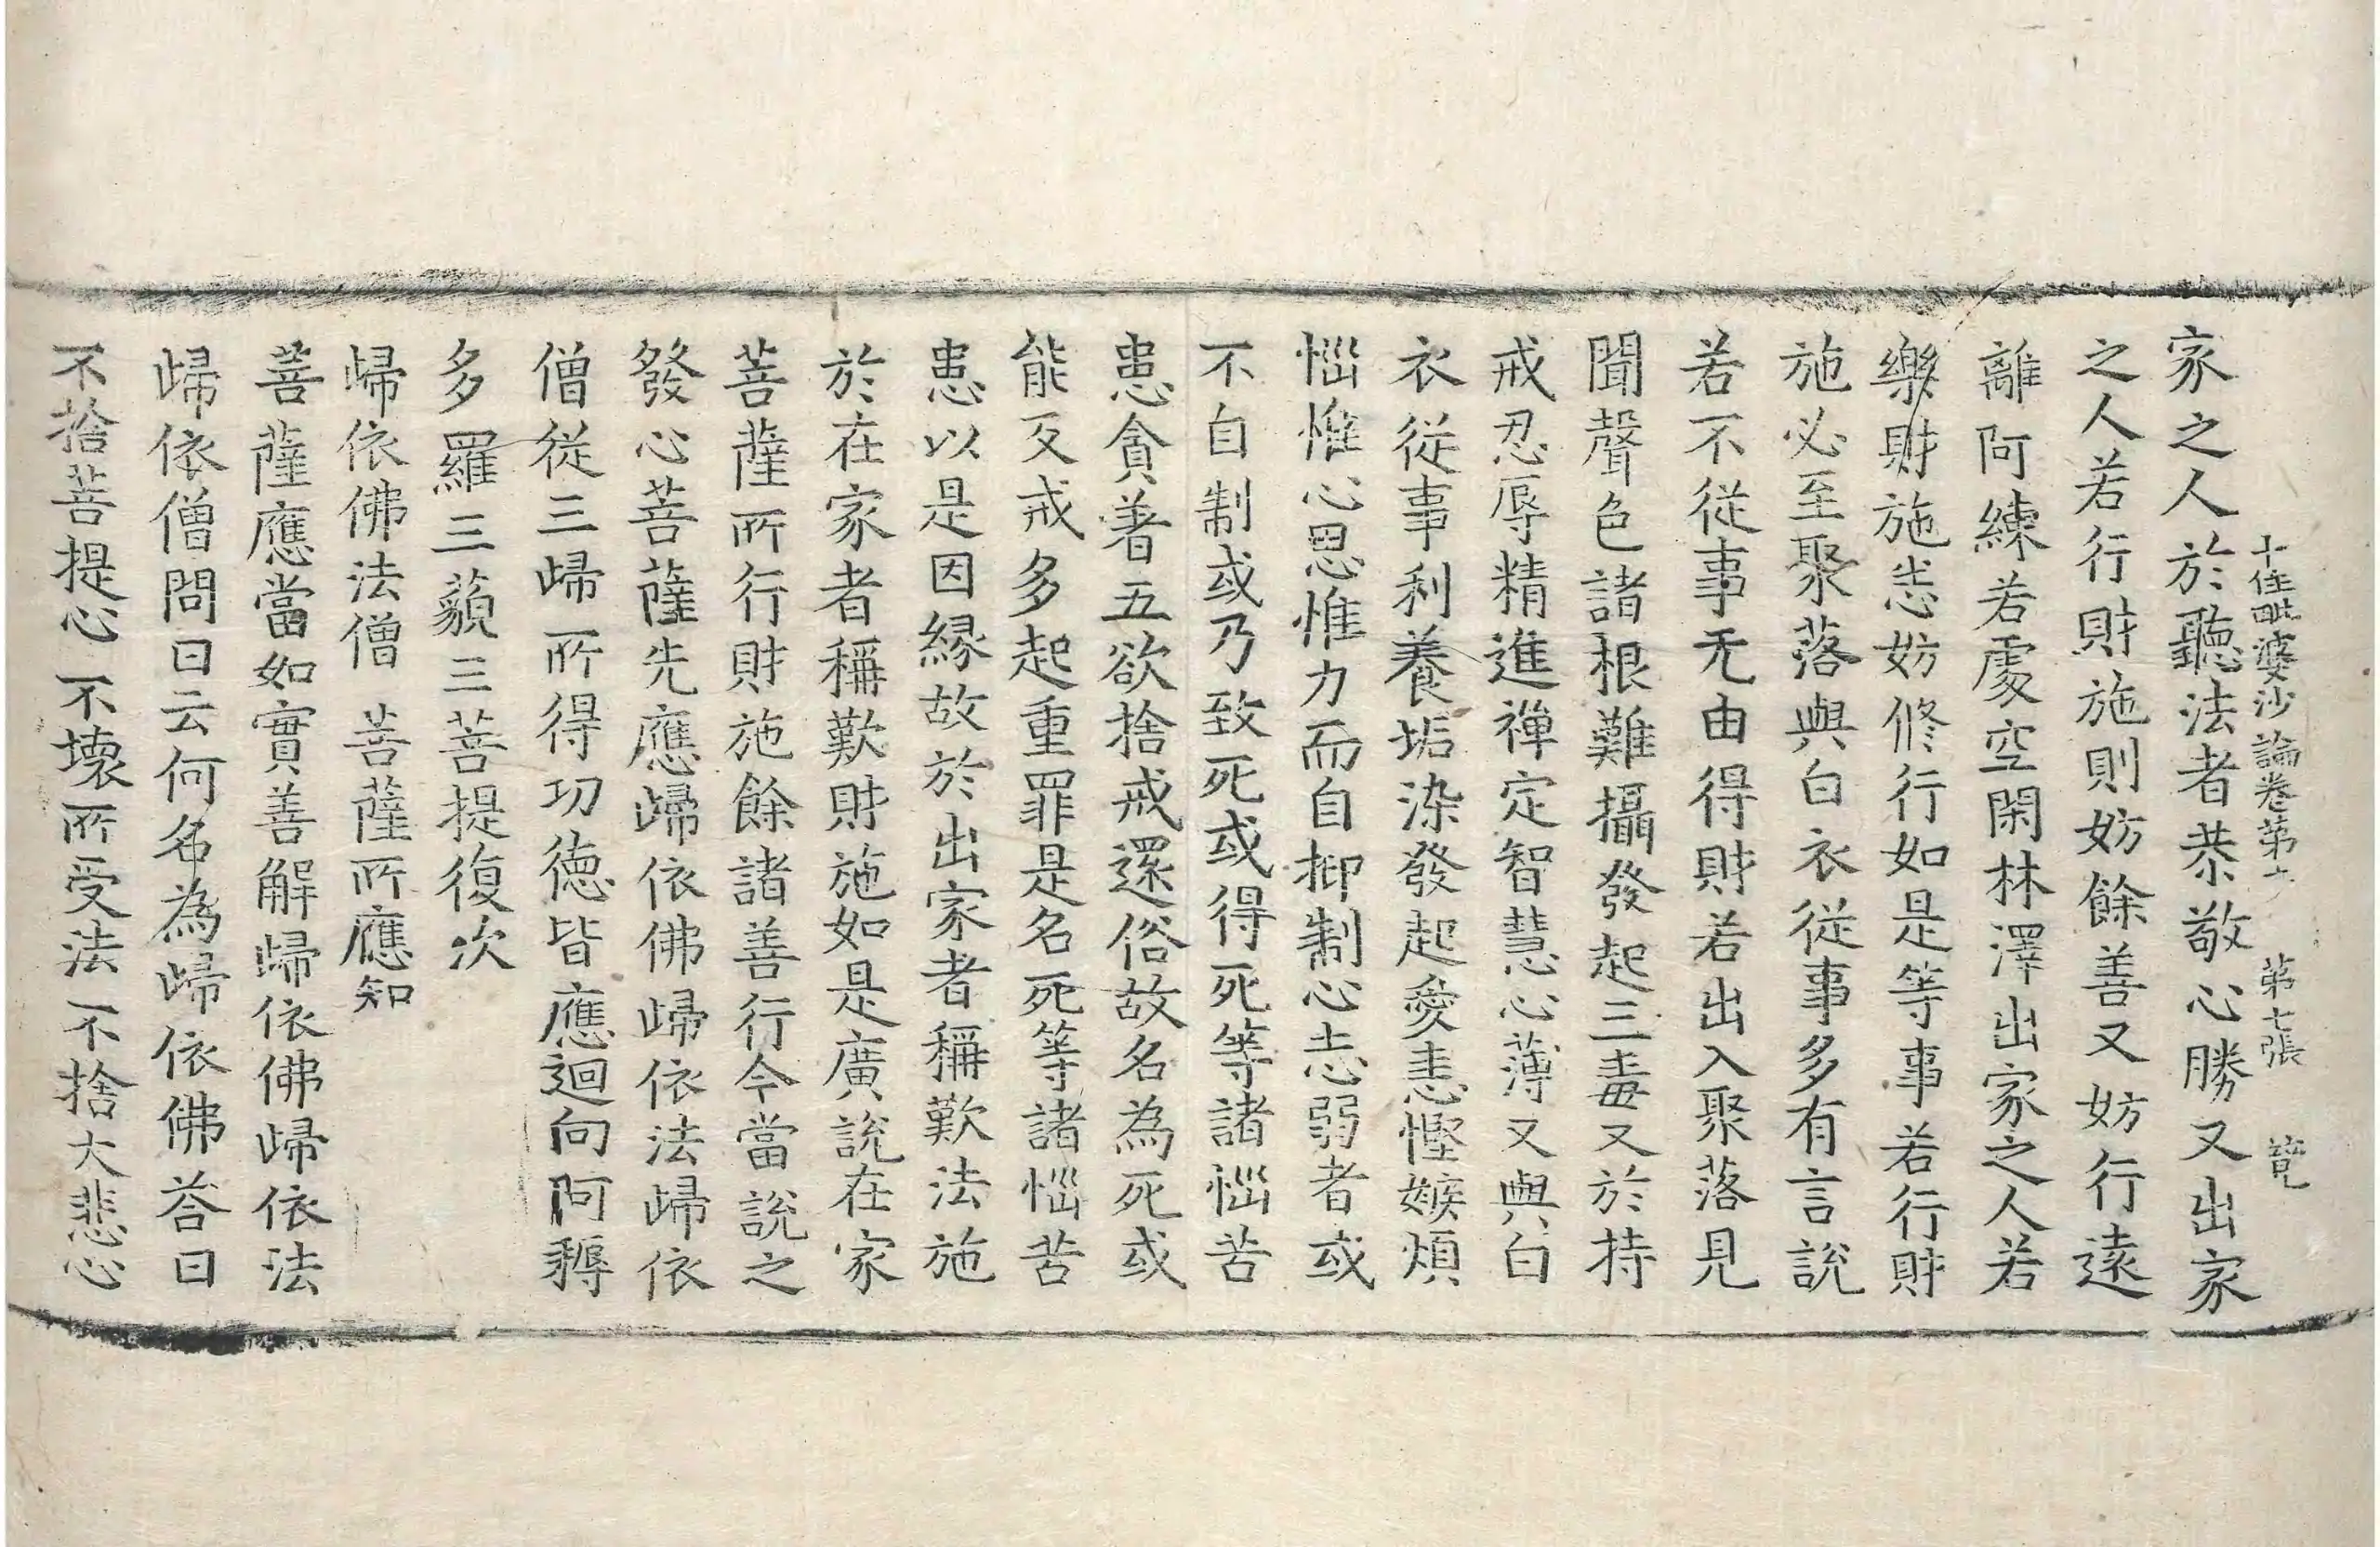 十住毗婆沙論卷第六 第七張 覽
家之人於聽法者恭敬心勝又出家
之人若行財施則妨餘善又妨行遠
離阿練若處空閑林澤出家之人若
樂財施恙妨修行如是等事若行財
施必至聚落與白衣從事多有言說
若不從事无由得財若出入聚落見
聞聲色諸根難攝發起三毒又於持
戒忍辱精進禪定智慧心薄又與白
衣從事利養垢染發起愛恚慳嫉煩
惱惟心思惟力而自抑制心志弱者或
不自制或乃致死或得死等諸惱苦
患貪著五欲捨戒還俗故名為死或
能反戒多起重罪是名死等諸惱苦
患以是因緣故於出家者稱歎法施
於在家者稱歎財施如是廣說在家
菩薩所行財施餘諸善行今當說之
發心菩薩先應歸依佛歸依法歸依
僧從三歸所得功德皆應迴向阿耨
多羅三藐三菩提復次
歸依佛法僧 菩薩所應知
菩薩應當如實善解歸依佛歸依法
歸依僧問曰云何名為歸依佛荅曰
不捨菩提心 不壞所受法 不捨大悲心